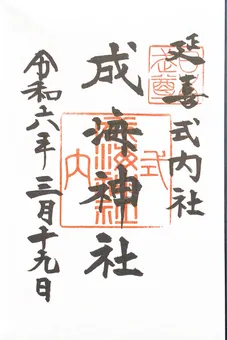 延喜式内社
成海神社
令和六年三月十九日
式内
成海神社